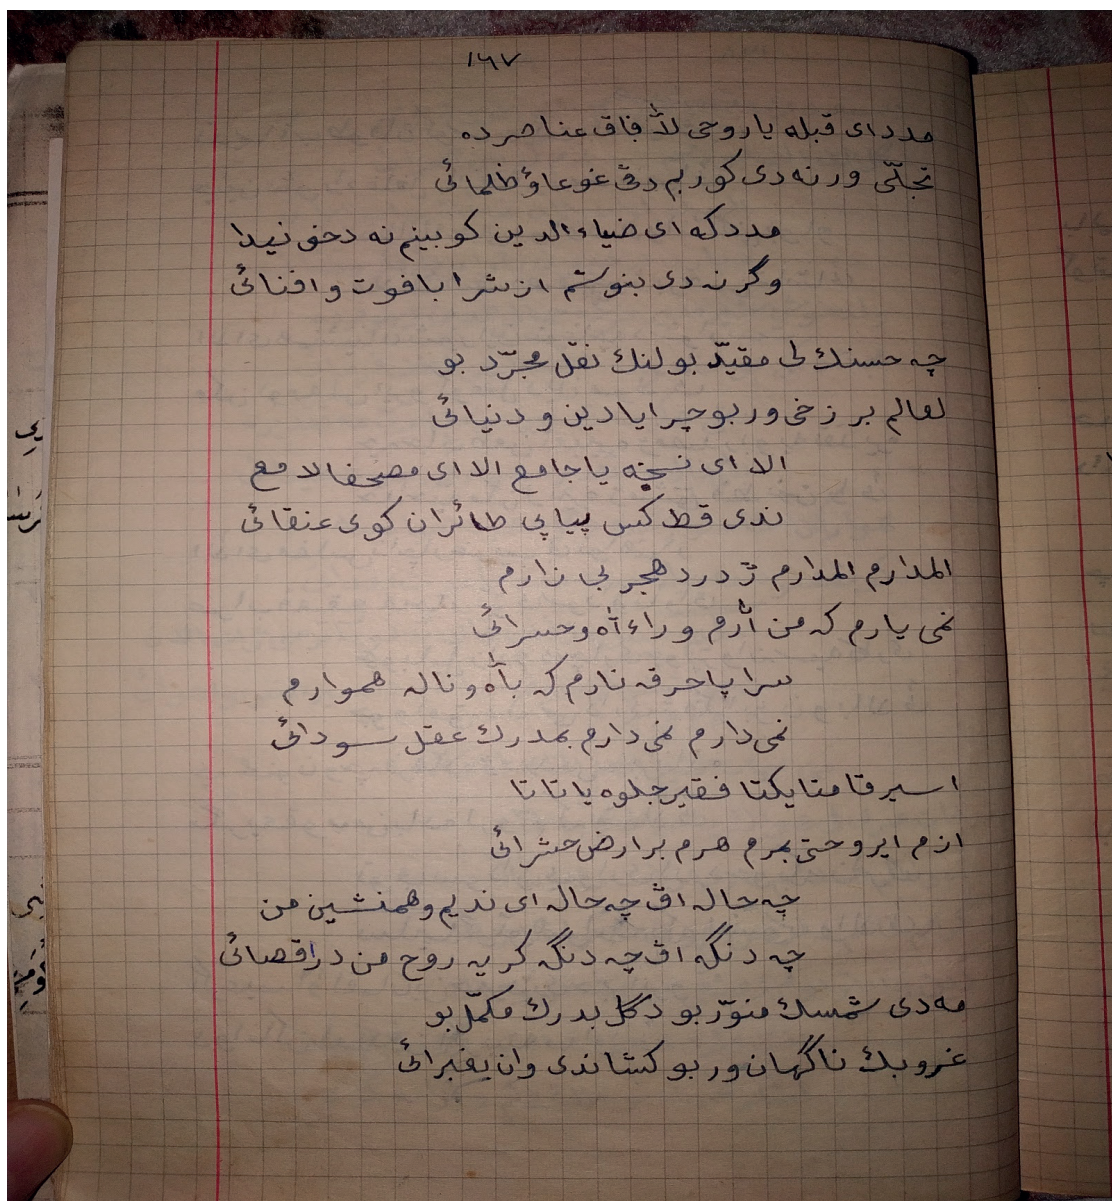 ١٦٧
مدد ای قبله یا روحی لآفاق عناصر ده
تجلّی ور نه دی کوربم دڤی غوغاؤ ظلمائی
مدد که ای ضیاء الدین کو بینم نه دحق نیدا
وگرنه دی بنوشم از شرابا فوت و افنائی
چه حسنك لی مقیدّ بو لنك نقل مجرّد بو
لعالم برزخی وربو چرایا دین و دنیائی
الا ای نسخه یا جامع الا ای مصحفا لامع
ندی قط کس پیاپی طائران کوی عنقائی
المدارم المدارم ژ درد هجر بی زارم
نمی یارم که من آرم وراء آه وحسرائی
سراپا حرقه نارم که بآه و ناله هموارم
نمی دارم نمی دارم بمدرك عقل سودائی
اسیر قامتا یکتا فقیر جلوه یا تاتا
ازم ایرو حتی بمرم هرم بر ارض حشرائی
چه حاله اڤ چه حاله ای ندیم وهمنشین من
چه دنگه اڤ چه دنگه کریه روح من دراقصائی
مه دی شمسك منوّر بو دگل بدرك مکمّل بو
غروبك ناگهان وربو کشاندی وان یغبرائی